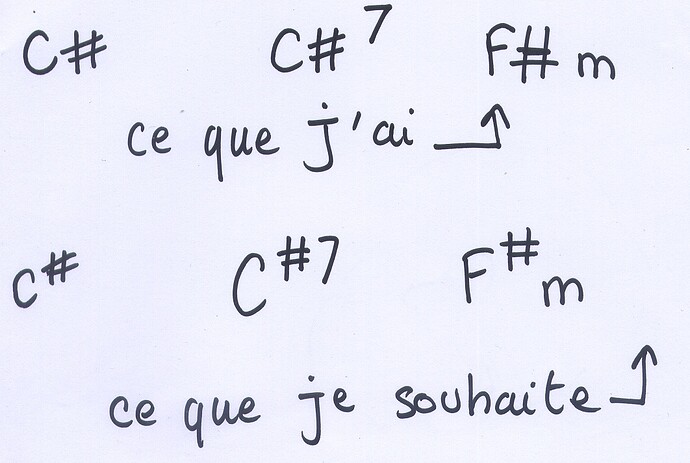 C# C#7 F#m
ce que j'ai
C# C#7 F#m
ce que je souhaite